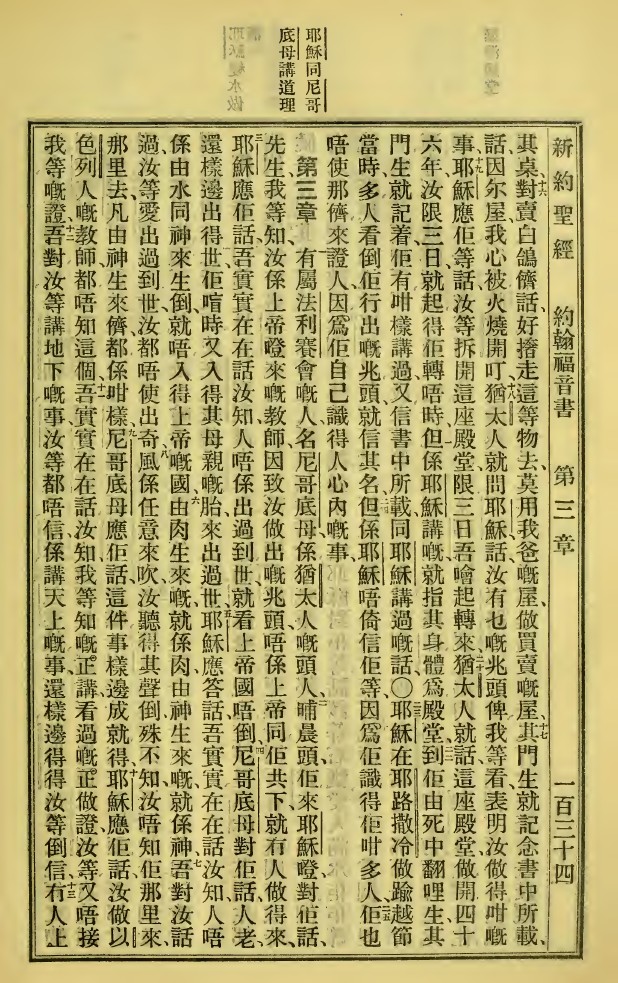 耶穌同尼哥
底母講道理
新約聖經 約翰福音書 第三章 一百三十四
其桌、十六對賣白鴿儕話、好撿走這等物去、莫用我爸嘅屋、做買賣嘅屋、十七其門生就記念書中所載、
話、因尔屋、我心被火燒開叮、十八猶太人就問耶穌話、汝有乜嘅兆頭俾我等看、表明汝做得咁嘅
事、十九耶穌應佢等話、汝等拆開這座殿堂、限三日吾噲起轉來、二十猶太人就話、這座殿堂做開四十
六年、汝限三日就起得佢轉唔時、但係耶穌講嘅、就指其身體爲殿堂、到佢由死中翻哩生、其
門生就記着佢有咁樣講過、又信書中所載、同耶穌講過嘅話、〇耶穌在耶路撒冷做踰越節
當時、多人看倒佢行出嘅兆頭、就信其名、但係耶穌唔倚信佢等、因爲佢識得佢咁多人、佢也
唔使那儕來證人、因爲佢自己識得人心內嘅事、
第三章 有屬法利賽會嘅人、名尼哥底母、係猶太人嘅頭人、二晡晨頭佢來耶穌嶝、對佢話、
先生、我等知汝係上帝嶝來嘅教師、因致汝做出嘅兆頭、唔係上帝同佢共下、就有人做得來、
三耶穌應佢話、吾實實在在話汝知、人唔係出過到世、就看上帝國唔倒、四尼哥底母對佢話、人老、
還樣邊出得世、佢喑時又入得其母親嘅胎來出過世、五耶穌應答話、吾實實在在話汝知、人唔
係由水同神來生倒、就唔入得上帝嘅國、六由肉生來嘅、就係肉、由神生來嘅、就係神、七吾對汝話
過、汝等愛出過到世、汝都唔使出奇、八風係任意來吹、汝聽得其聲倒、殊不知、汝唔知佢那里來、
那里去、凡由神生來儕、都係咁樣、九尼哥底母應佢話、這件事樣邊成就得、十耶穌應佢話、汝做以
色列人嘅教師、都唔知這個、十一吾實實在在話汝知、我等知嘅、正講、看過嘅、正做證、汝等又唔接
我等嘅證、十二吾對汝等講地下嘅事、汝等都唔信、係講天上嘅事、還樣邊得得汝等倒信、十三有人上